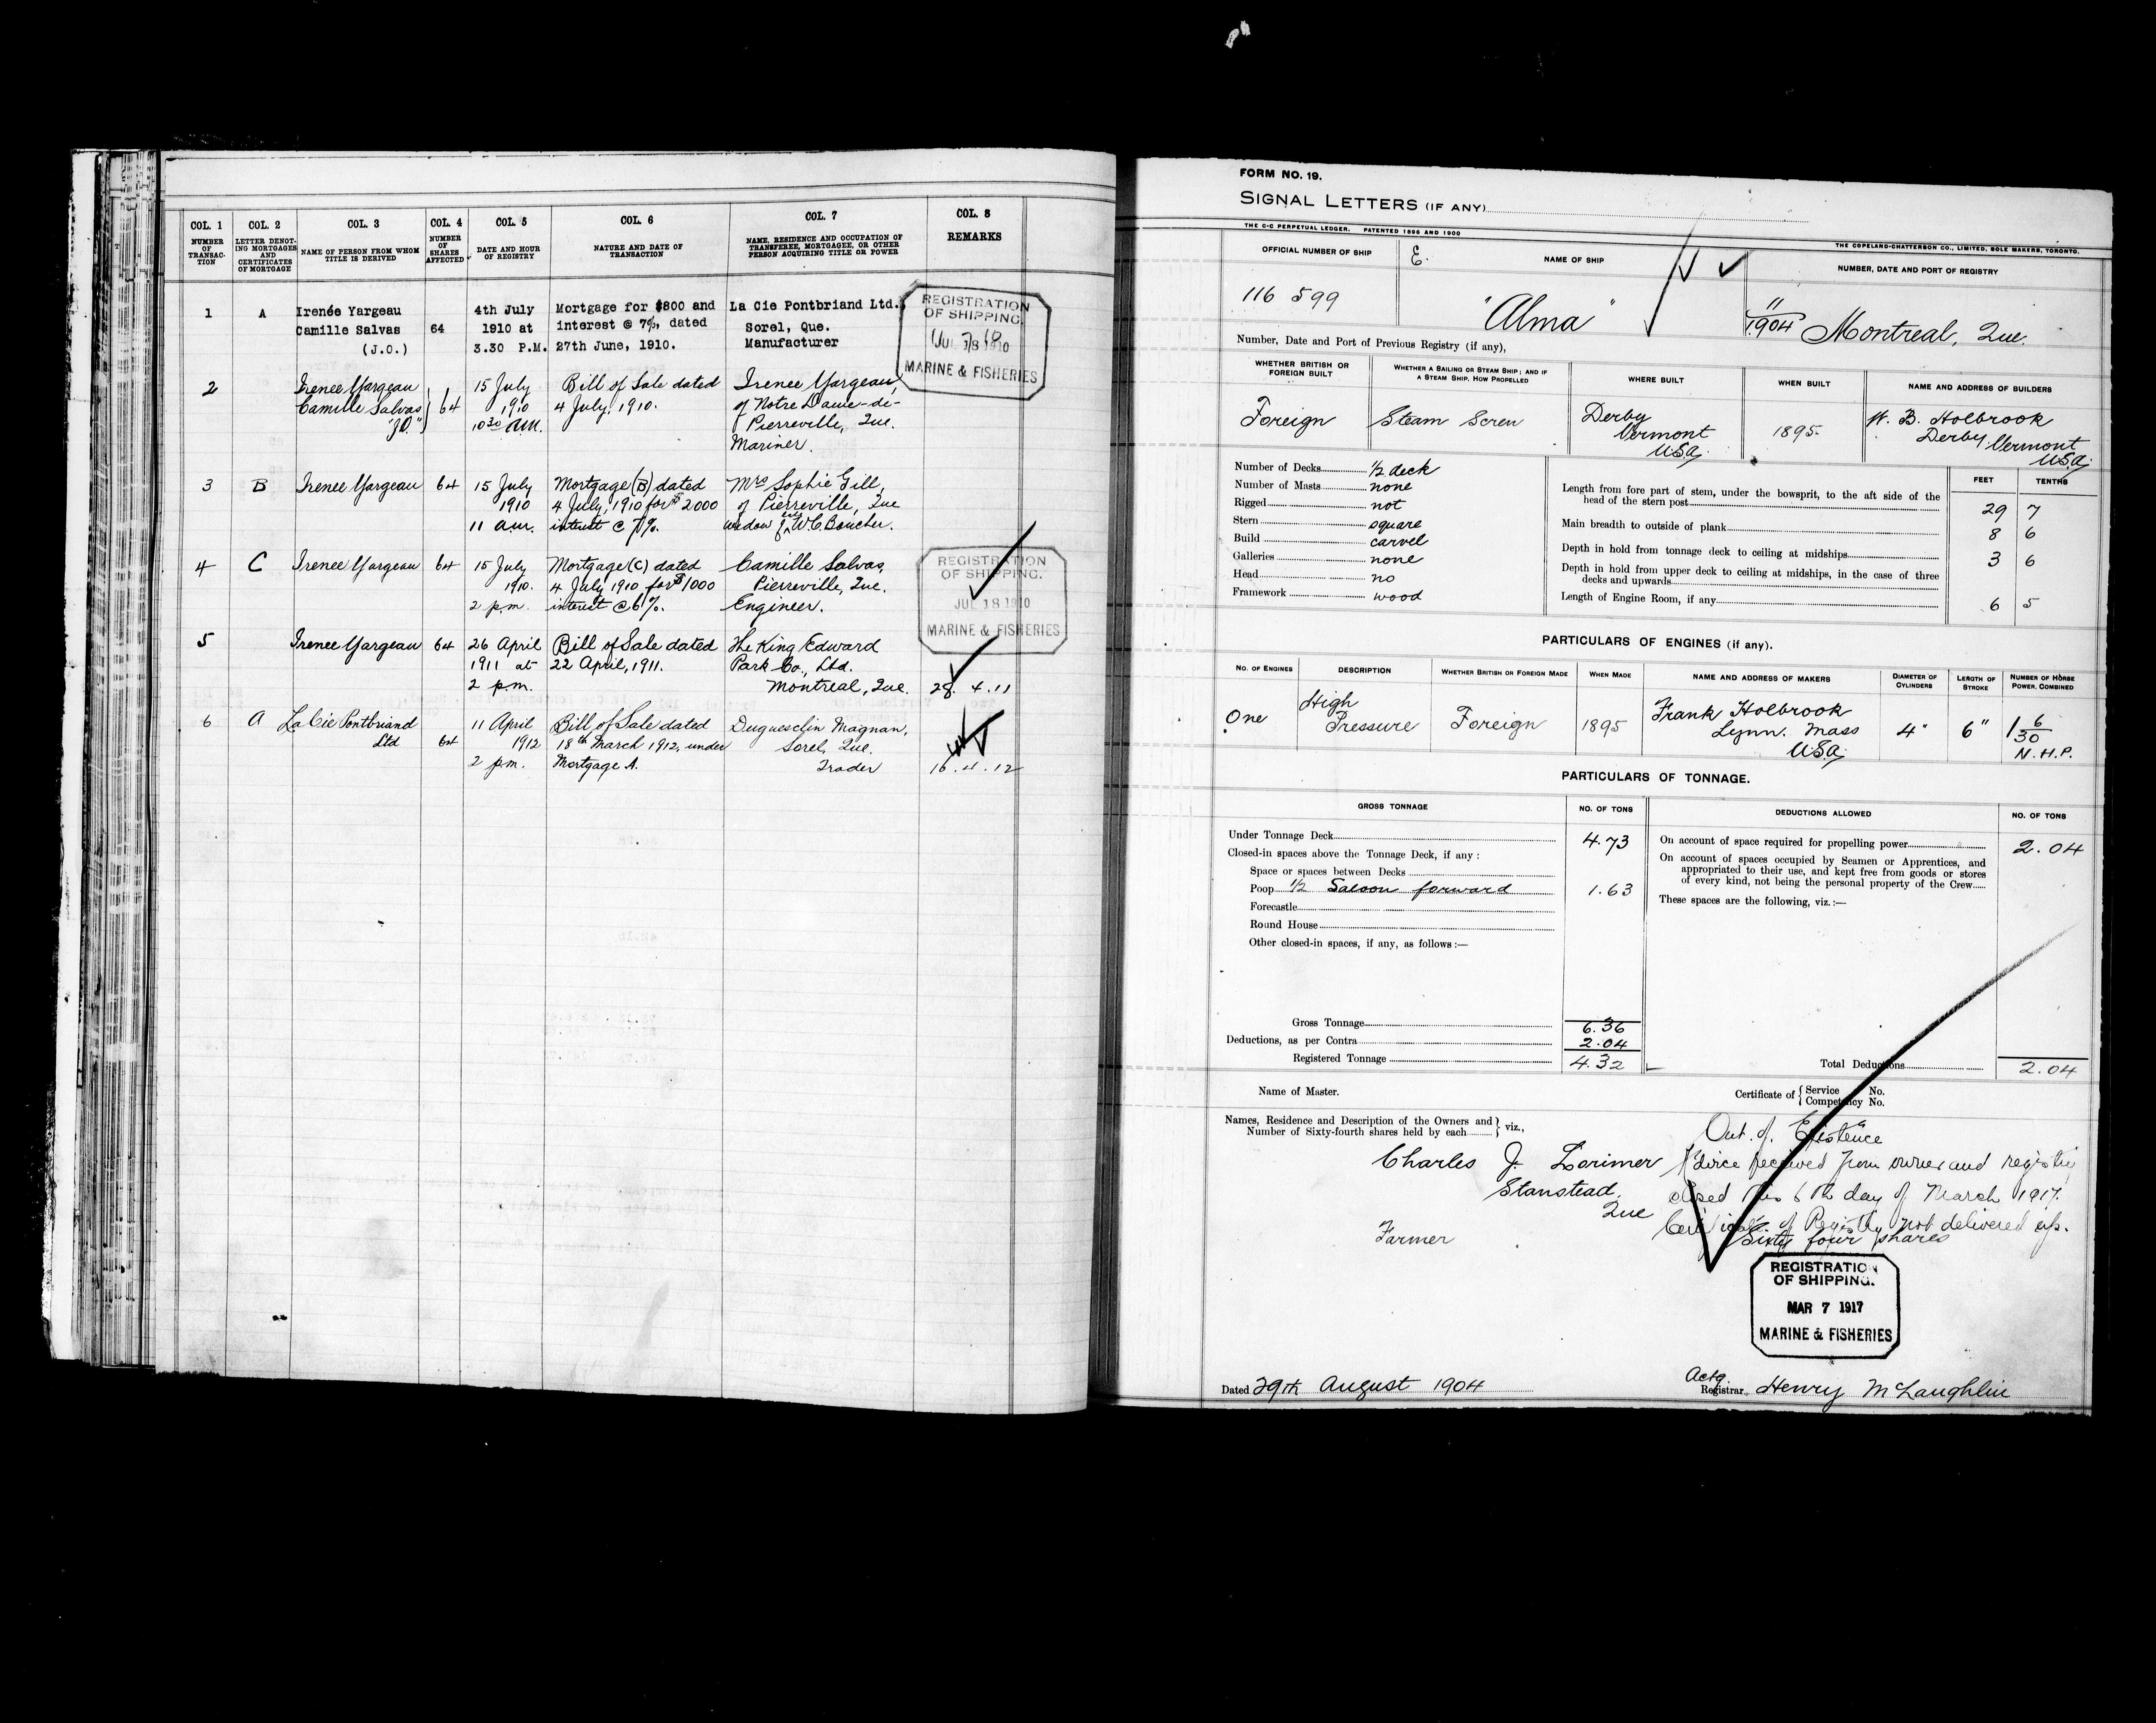 COL. 1
NUMBER
OF
TRANSAC-
TION
COL. 2
LETTER DENOT-
ING MORTGAGES
AND
CERTIFICATES
OF MORTGAGE
COL. 3
NAME OF PERSON FROM WHOM
TITLE IS DERIVED
COL. 4
NUMBER
OF
SHARES
AFFECTED
COL. 5
DATE AND HOUR
OF REGISTRY
COL. 6
NATURE AND DATE OF
TRANSACTION
COL. 7
NAME, RESIDENCE AND OCCUPATION OF
TRANSFEREE, MORTGAGEE, OR OTHER
PERSON ACQUIRING TITLE OR POWER
COL. 8
REMARKS
1 A Irenée Yargeau 4th July Mortgage for $800 and La Cie Pontbriand Ltd.
Camille Salvas 64 1910 at interest @ 7%, dated Sorel, Que.
(J.O.) 3.30 P.M. 27th June, 1910. Manufacturer
REGISTRATION
OF SHIPPING.
MARINE & FISHERIES
2 Irenee Yargeau 15 July Bill of Sale dated Irenee Yargeau,
Camille Salvas 64 1910 4 July, 1910. of Notre Dame-de-
"J.O." 10 30 a.m. Pierreville, Que.
Mariner.
3 B Irenee Yargeau 64 15 July Mortgage (B) dated Mrs Sophie Gill,
1910 4 July, 1910 for $2000 of Pierreville, Que
11 a.m. interest @ 7%. widow of W.C. Boucher.
4 C Irenee Yargeau 64 15 July Mortgage (C) dated Camille Salvas,
1910. 4 July 1910 for $1000 Pierreville, Que.
2 p.m. interest @ 6%. Engineer.
REGISTRATION
OF SHIPPING.
JUL 18 1910
MARINE & FISHERIES
5 Irenee Yargeau 64 26 April Bill of Sale dated The King Edward
1911 at 22 April, 1911. Park Co., Ltd.
2 p.m. Montreal, Que. 28. 4. 11
6 A La Cie Pontbriand 11 April Bill of Sale dated Duguesclin Magnan,
Ltd 64 1912 18th March 1912, under Sorel, Que.
2 p.m. Mortgage A. Trader 16. 4. 12
FORM NO. 19.
SIGNAL LETTERS (IF ANY)
THE C-C PERPETUAL LEDGER. PATENTED 1896 AND 1900
THE COPELAND-CHATTERSON CO., LIMITED, SOLE MAKERS, TORONTO.
OFFICIAL NUMBER OF SHIP
E. NAME OF SHIP
NUMBER, DATE AND PORT OF REGISTRY
116 599 "Alma" 11/1904 Montreal, Que.
Number, Date and Port of Previous Registry (if any),
WHETHER BRITISH OR
FOREIGN BUILT
WHETHER A SAILING OR STEAM SHIP; AND IF
A STEAM SHIP, HOW PROPELLED
WHERE BUILT
WHEN BUILT
NAME AND ADDRESS OF BUILDERS
Foreign Steam Screw Derby 1895. W. B. Holbrook
Vermont Derby Vermont
USA. USA.
Number of Decks 1/2 deck
Number of Masts none
Rigged not
Stern square
Build carvel
Galleries none
Head no
Framework wood
FEET TENTHS
Length from fore part of stem, under the bowsprit, to the aft side of the
head of the stern post 29 7
Main breadth to outside of plank 8 6
Depth in hold from tonnage deck to ceiling at midships 3 6
Depth in hold from upper deck to ceiling at midships, in the case of three
decks and upwards
Length of Engine Room, if any 6 5
PARTICULARS OF ENGINES (if any).
NO. OF ENGINES
DESCRIPTION
WHETHER BRITISH OR FOREIGN MADE
WHEN MADE
NAME AND ADDRESS OF MAKERS
DIAMETER OF
CYLINDERS
LENGTH OF
STROKE
NUMBER OF HORSE
POWER, COMBINED
One High Pressure Foreign 1895 Frank Holbrook 4" 6" 1 6/30
Lynn. Mass
USA. N.H.P.
PARTICULARS OF TONNAGE.
GROSS TONNAGE NO. OF TONS
DEDUCTIONS ALLOWED NO. OF TONS
Under Tonnage Deck 4.73
Closed-in spaces above the Tonnage Deck, if any :
Space or spaces between Decks
Poop 1/2 Saloon forward 1.63
Forecastle
Round House
Other closed-in spaces, if any, as follows :—
Gross Tonnage 6.36
Deductions, as per Contra 2.04
Registered Tonnage 4.32
On account of space required for propelling power 2.04
On account of spaces occupied by Seamen or Apprentices, and
appropriated to their use, and kept free from goods or stores
of every kind, not being the personal property of the Crew
These spaces are the following, viz. :—
Total Deductions 2.04
Name of Master.
Certificate of { Service No.
Competency No.
Names, Residence and Description of the Owners and
Number of Sixty-fourth shares held by each } viz.,
Charles J. Lorimer
Stanstead.
Que
Farmer
Sixty four shares
Out of Existence
Advice received from owner and registry
closed this 6th day of March 1917.
Certificate of Registry not delivered up.
REGISTRATION
OF SHIPPING.
MAR 7 1917
MARINE & FISHERIES
Dated 29th August 1904
Actg
Registrar Henry McLaughlin